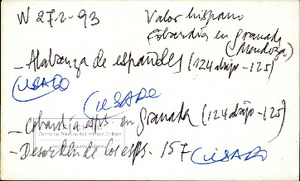 W 272-93 Valor hispano
Cobardía en Granada
(Mendoza)
- Alabanza de españoles (124 abajo - 125)
(USADO)
(USADO)
- Cobardía esps. en Granada (124 abajo - 125)
- Desorden de los esps. - 157 (USADO)